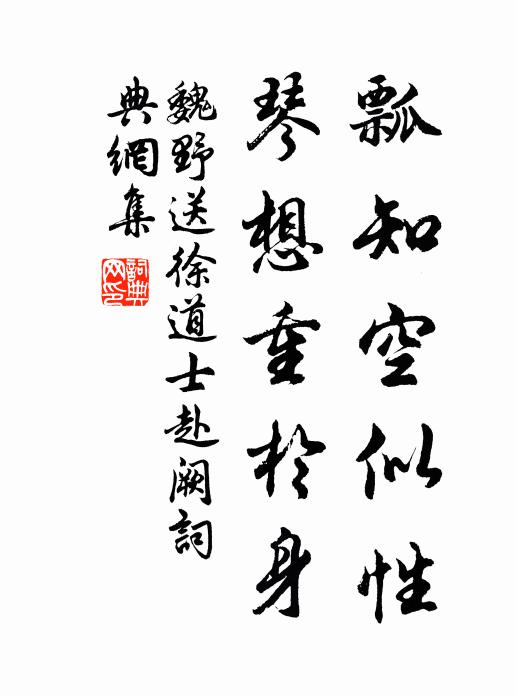 瓢知空似性
琴想重於身
魏野送徐道士赴阙詞
典網集
詞典
网印